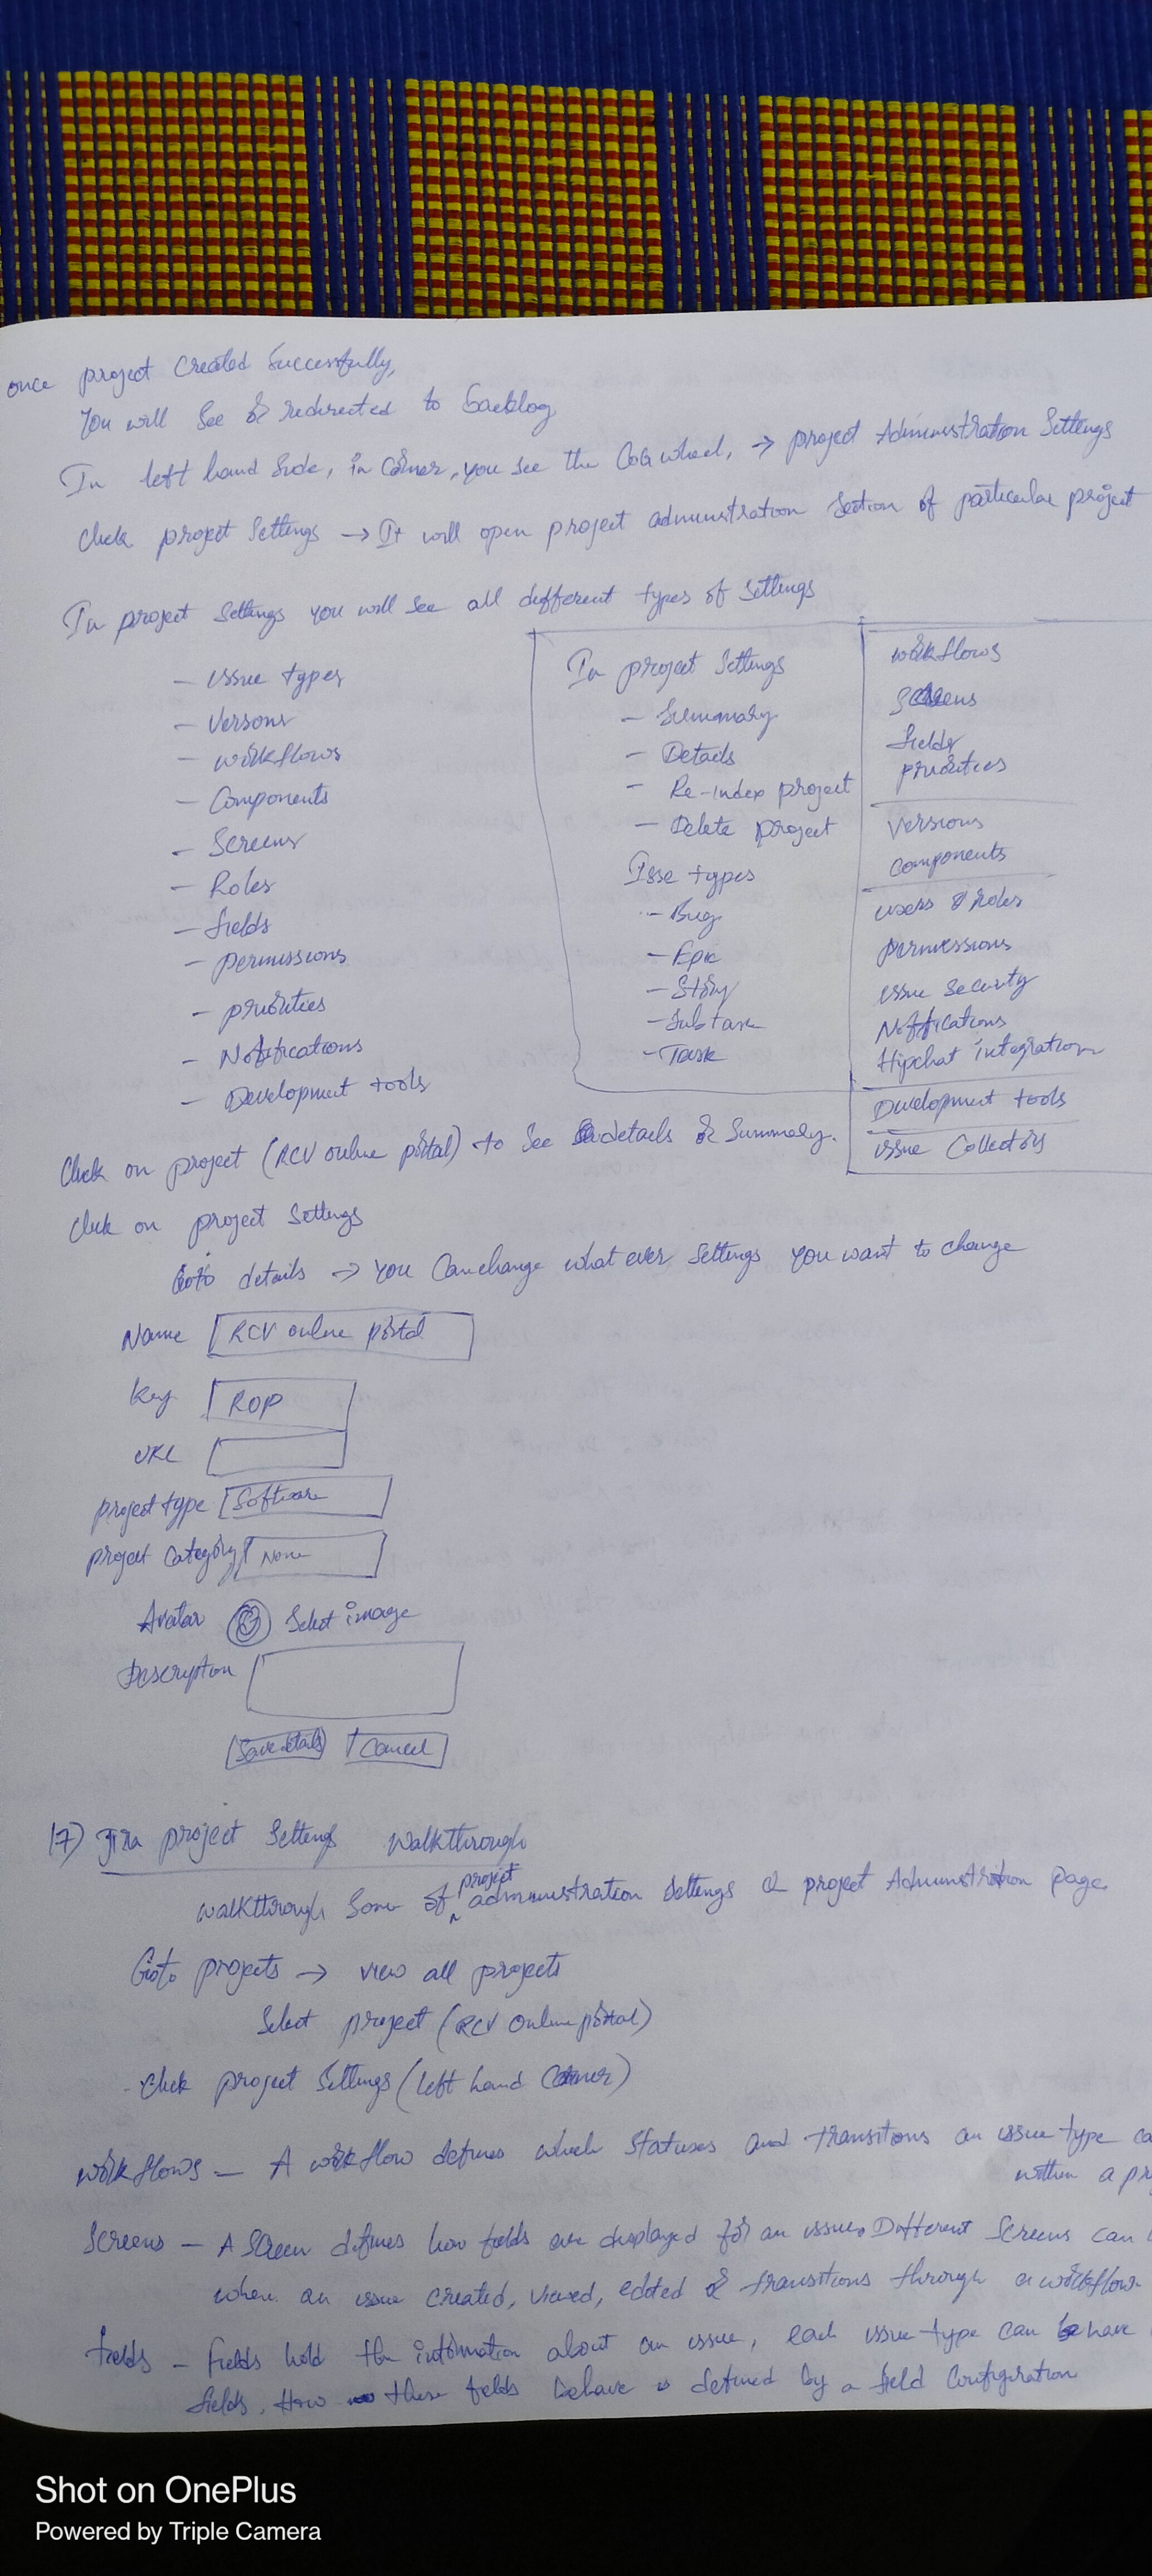 once project Created Successfully,
You will See & redirected to backlog
In left hand Side, in Corner, you see the CoG wheel, → project Administration Settings
Click project Settings → It will open project administration Section of particular project
In project Settings you will see all different types of Settings
- issue types
- Versons
- workflows
- Components
- Screens
- Roles
- fields
- permissions
- priorities
- Notifications
- Development tools
In project Settings
- Summary
- Details
- Re-index project
- Delete project
Isse types
- Bug
- Epic
- Story
- Subtask
- Task
workflows
Screens
fields
priorities
Versions
Components
users & roles
permissions
issue Security
Notifications
Hipchat integration
Development tools
issue Collectors
Click on project (RCV online portal) to See details & Summary.
Click on project Settings
Goto details → you Can change what ever Settings you want to change
Name RCV online portal
Key ROP
URL
project type Software
project Category None
Avatar Select image
Description
Save details Cancel
17) Jira project Settings Walkthrough
walkthrough Some of project administration Settings & project Administration page
Goto projects → view all projects
Select project (RCV Online portal)
- Click project Settings (left hand Corner)
workflows - A workflow defines which Statuses and transitions an issue type
within a
Screens - A Screen defines how fields are displayed for an issue. Different Screens can
when an issue created, viewed, edited & transitions through a workflow
fields - fields hold the information about an issue, each issue type can have
fields. How these fields behave is defined by a field Configuration
Shot on OnePlus
Powered by Triple Camera